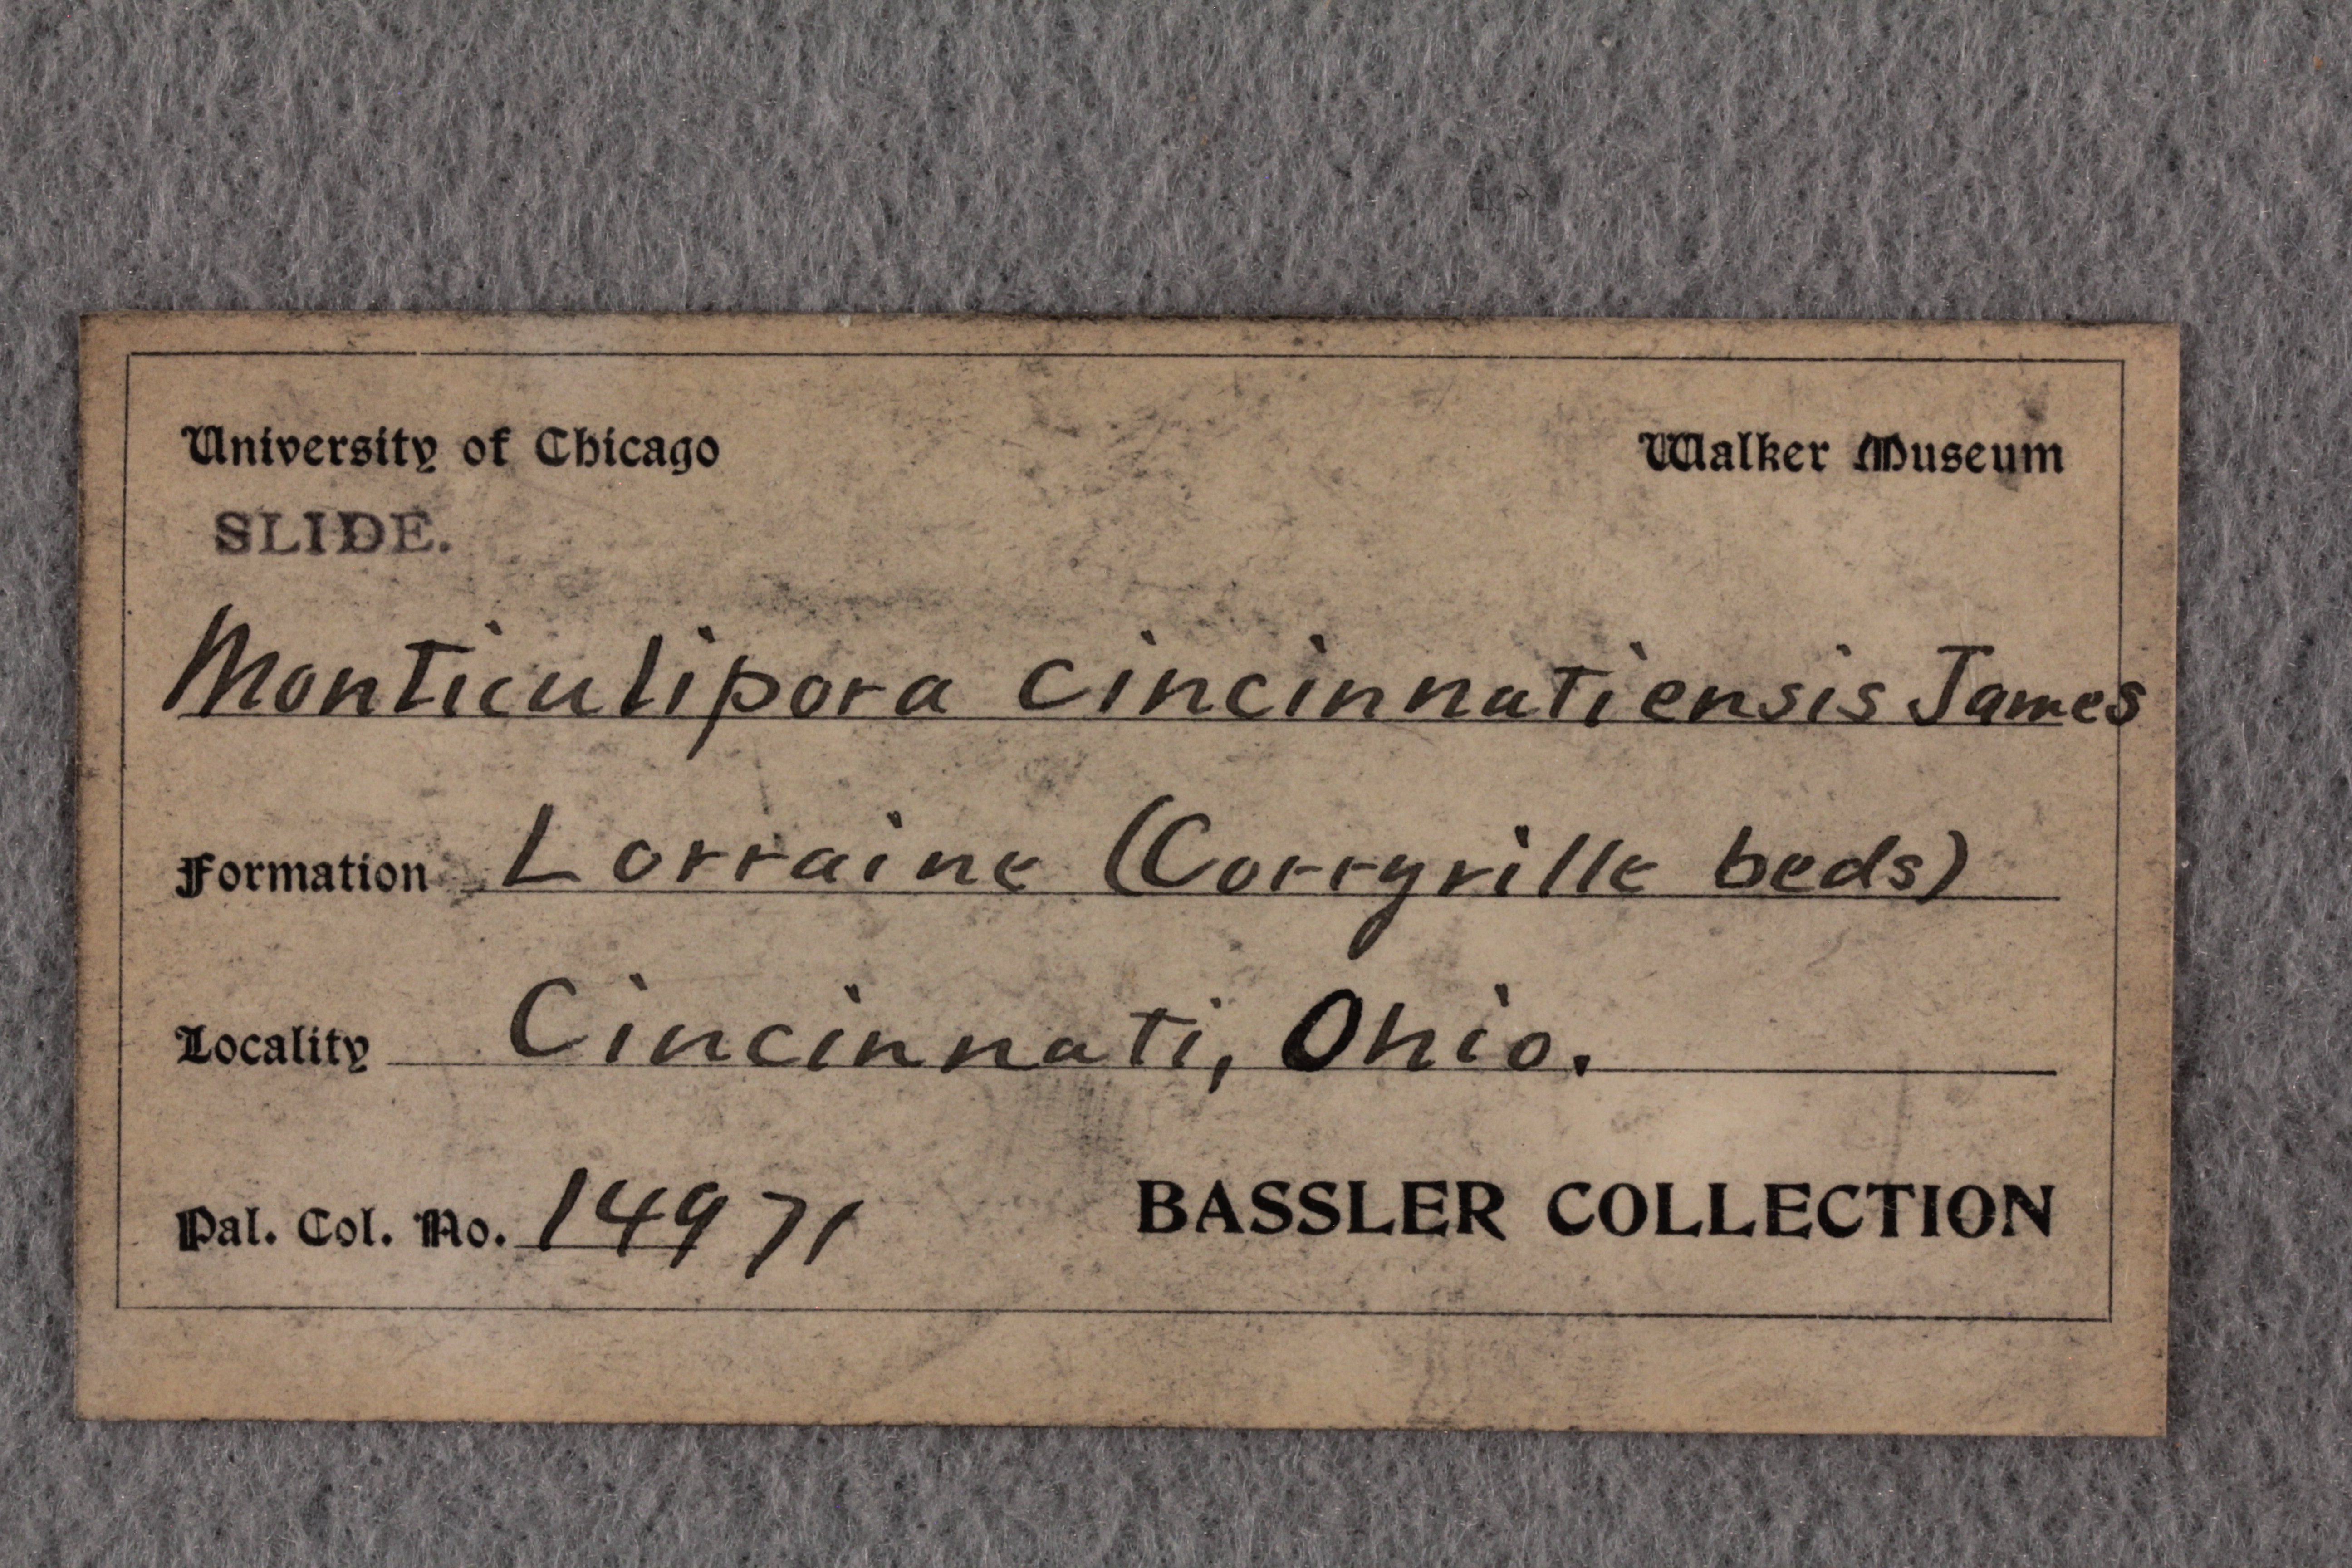 University of Chicago Walker Museum
SLIDE.
Monticulipora cincinnatiensis James
Formation Lorraine (Corryville beds)
Locality Cincinnati, Ohio.
Pal. Col. No. 14971 BASSLER COLLECTION